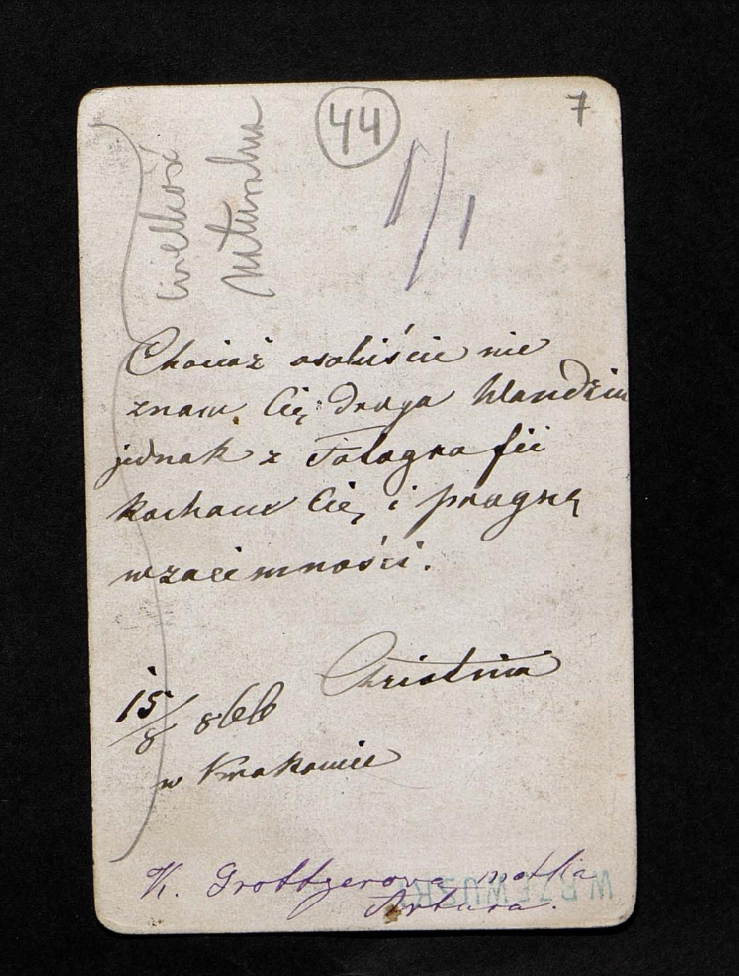 44
7
1/1
wielkość
naturalna
Chociaż osobiście nie
znam Cię droga Wandziu
jednak z Fotografii
kocham Cię i pragnę
wzaiemności.
Christina
15/8 866
w Krakowie
K. Grottgerowa matka
Artura.
W. RZEWUSKI